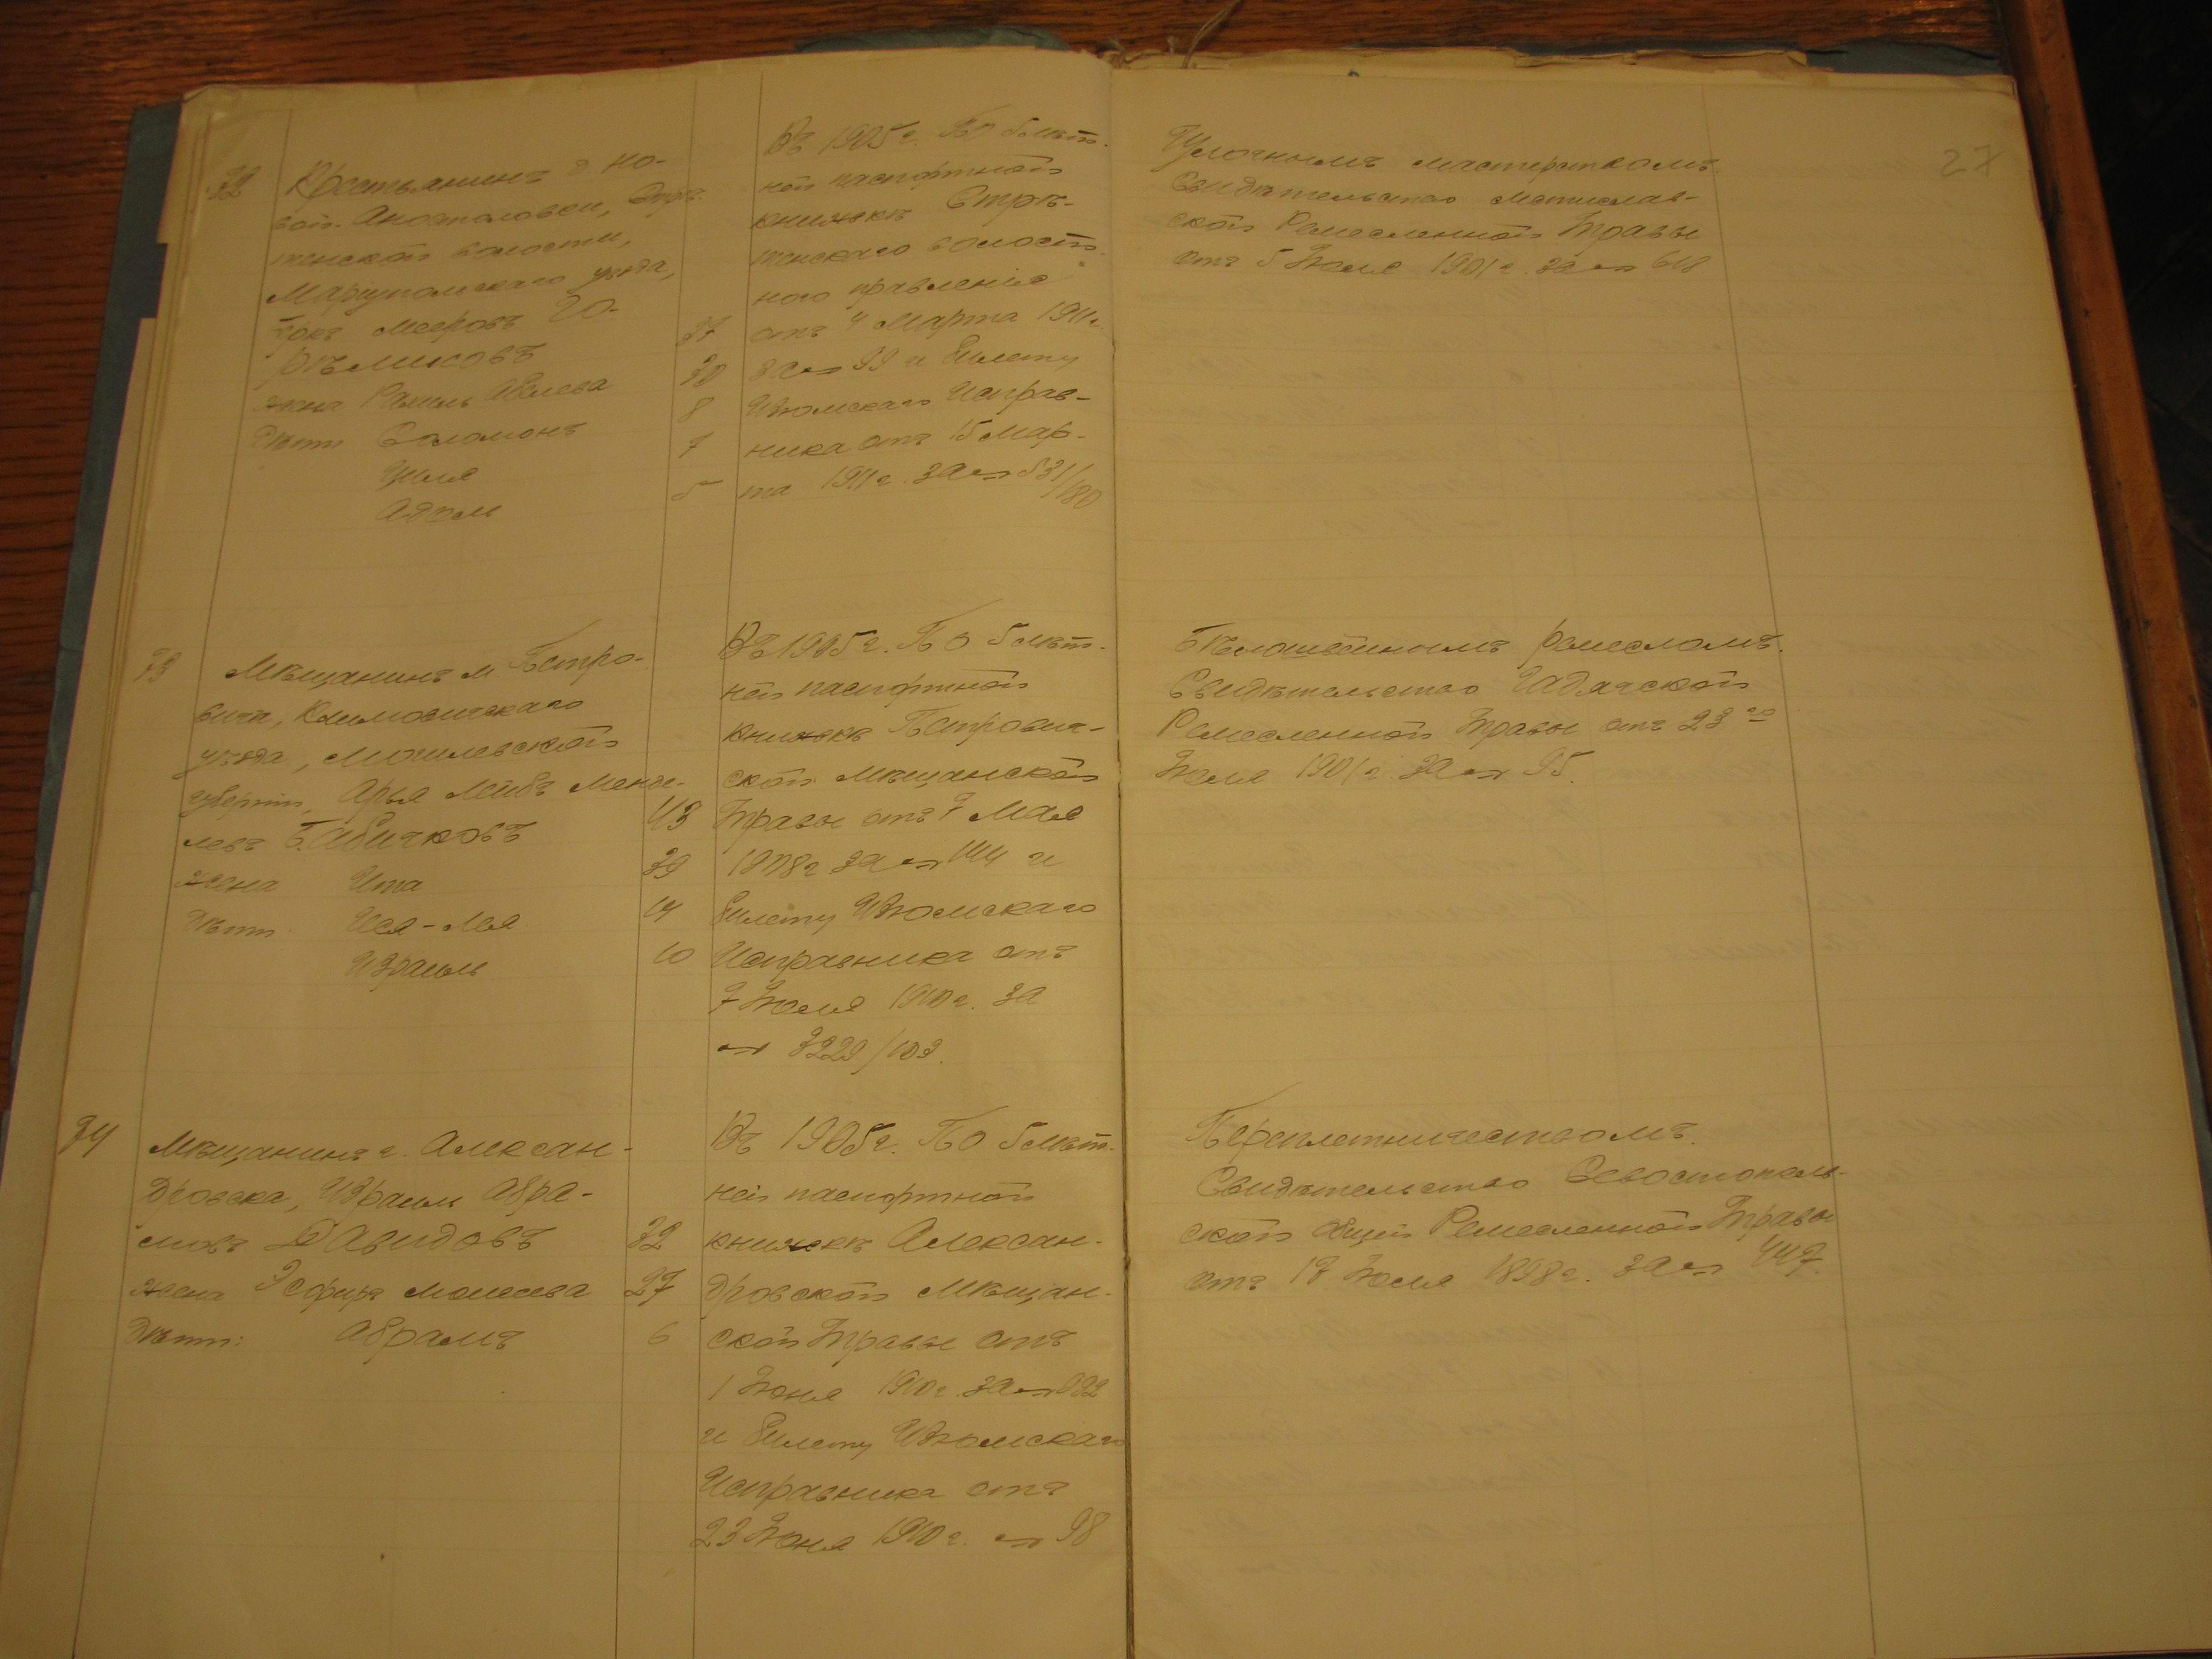 27
32
Крестьянинъ д. Но-
вой-Апостоловки, Стрѣ-
тенской волости,
Маріупольскаго уѣзда,
Мееровъ Го-
рѣликовъ 37
жена Рахиль Абелева 30
Дѣти Соломонъ 8
Циля 7
Адель 5
Въ 1905 г. По 5 лѣт-
ней паспортной
книжкѣ Стрѣ-
тенскаго волост-
ного правленія
отъ 4 Марта 1911 г.
за № 99 и билету
Изюмскаго Исправ-
ника отъ 15 Мар-
та 1911 г. за № 531/180
мастерствомъ.
Свидѣтельство Мстислав-
ской Ремесленной Управы
отъ 5 Іюля 1901 г. за № 618
33
Мѣщанинъ м. Петро-
вичи, Климовичскаго
уѣзда, Могилевской
губерніи, Арья Лейбъ Менде-
левъ Бабичковъ 43
жена Ита 39
Дѣти Ися-Мея 14
Израиль 10
Въ 1905 г. По 5 лѣт-
ней паспортной
книжкѣ Петрович-
ской Мѣщанской
Управы отъ 7 Мая
1908 г. за № 144 и
билету Изюмскаго
Исправника отъ
7 Іюля 1910 г. за
№ 3229/103.
Бѣлошвейнымъ ремесломъ.
Свидѣтельство Гадячской
Ремесленной Управы отъ 23 го
Іюля 1901 г. за № 95.
34
Мѣщанинъ г. Алексан-
дровска, Израиль Абра-
мовъ Давидовъ 32
жена Эсфирь Моисеева 27
Дѣти: Абрамъ 6
Въ 1905 г. По 5 лѣт-
ней паспортной
книжкѣ Алексан-
дровской Мѣщан-
ской Управы отъ
1 Іюня 1910 г. за №
и билету Изюмскаго
Исправника отъ
23 Іюня 1910 г. № 98
Переплетничествомъ.
Свидѣтельство Севостополь-
ской общей Ремесленной Управы
отъ 18 Іюля 1898 г. за № 447.